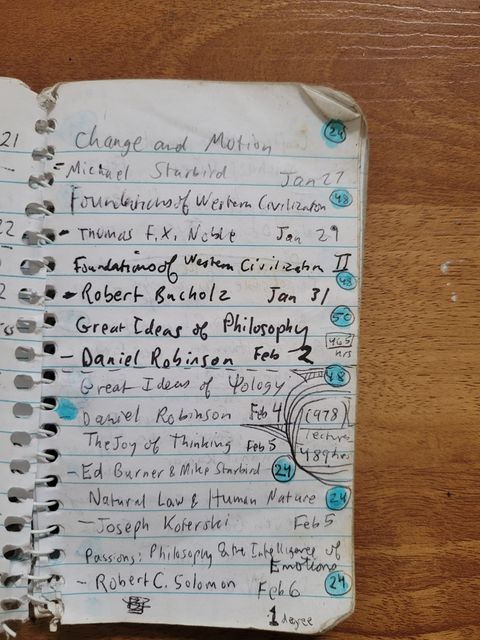 21
Change and Motion 24
- Michael Starbird Jan 27
Foundations of Western Civilization 48
- Thomas F.X. Noble Jan 29
Foundations of Western Civilization II
48
- Robert Bucholz Jan 31
Great Ideas of Philosophy 50
- Daniel Robinson Feb 2
465
hrs
Great Ideas of Ψology 48
Daniel Robinson Feb 4
(978)
lectures
489 hrs
The Joy of Thinking Feb 5
- Ed Burner & Mike Starbird 24
Natural Law & Human Nature 24
- Joseph Koterski Feb 5
Passions: Philosophy & the Intelligence of
Emotions
- Robert C. Solomon Feb 6 24
1 degree